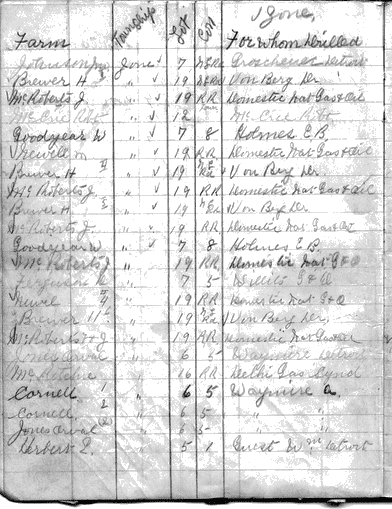 Zone
Farm Township Lot Con For whom Drilled
Zone ✓ 7 Detroit
Brewer H " ✓ 19 Von Berg Dr
McRoberts J. " ✓ 19 RR Domestic Nat Gas & Oil
McCrie Robt " ✓ 12 McCrie Robt
Goodyear W " ✓ 7 8 Holmes E B
Newell " ✓ 19 RR Domestic Nat Gas & Oil
Brewer H " ✓ 19 Von Berg Dr
McRoberts J. " ✓ 19 RR Domestic Nat Gas & Oil
Brewer H " ✓ 19 Von Berg Dr
McRoberts J. " ✓ 19 RR Domestic Nat Gas & Oil
Goodyear W " ✓ 7 8 Holmes E B
McRoberts J " 19 RR Domestic Nat G & O
Ferguson " 7 5 Willits G & O
Newel 4 " 19 RR Domestic Nat G & O
Brewer H " 19 Von Berg Dr
McRoberts J " 19 RR Domestic Nat Gas & Oil
Jones Orval " 6 5 Waymire Detroit
McRitchie " 16 RR Delhi Gas Synd
Cornell 1 " 6 5 Waymire A.
Cornell 2 " 6 5 " "
Jones Orval (2) " 6 5 " "
Herbert E. " 5 1 Guest Wm Detroit